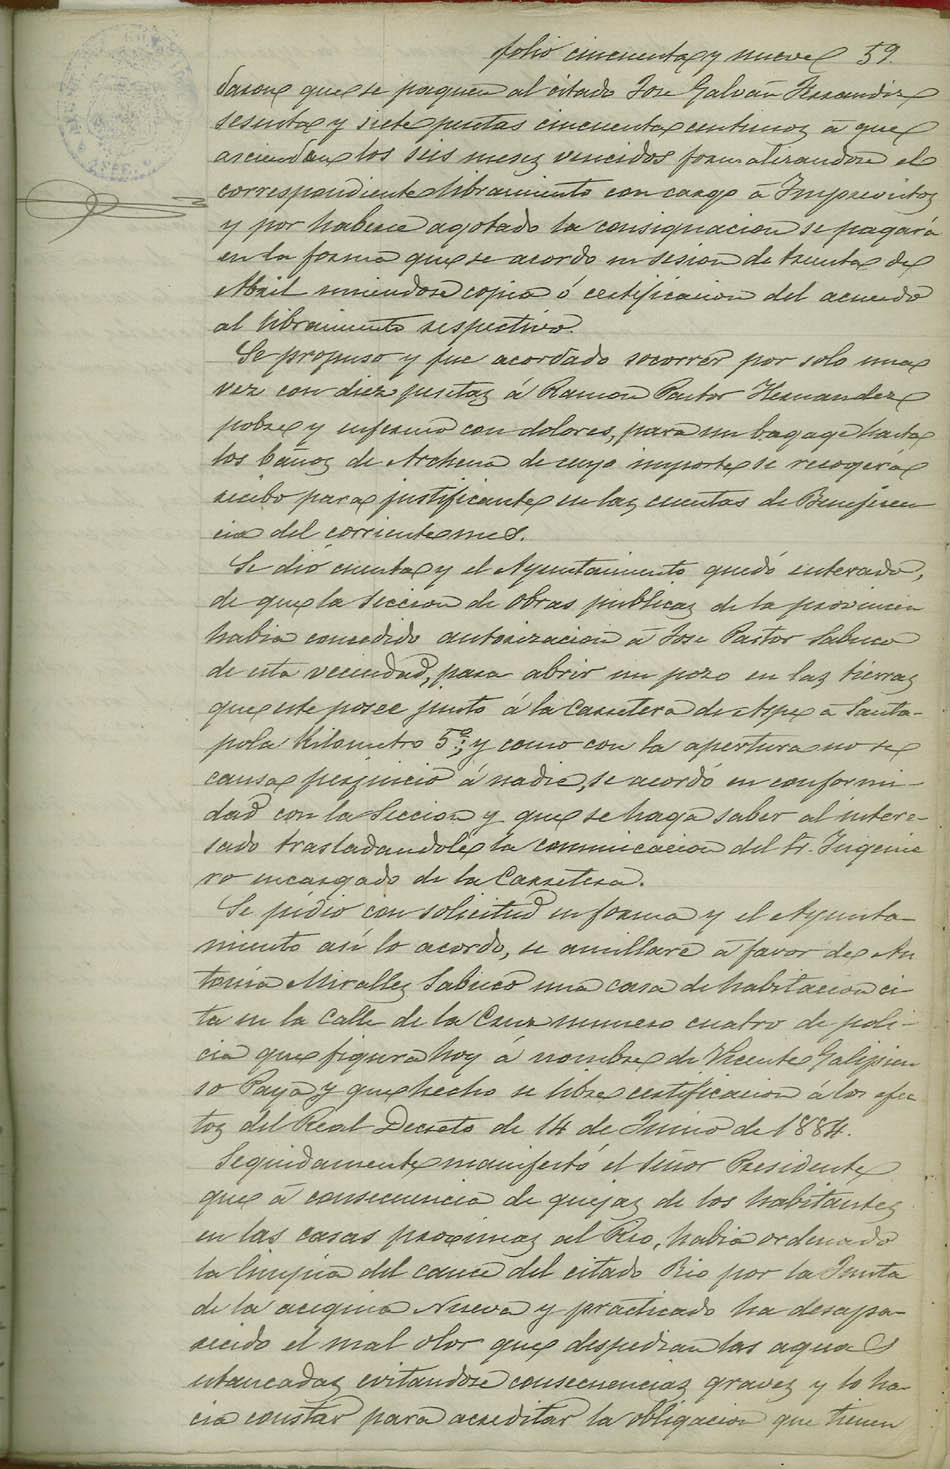 folio cincuenta y nueve 59.
daron que se paguen al citado Jose Galvañ Hernandiz
sesenta y siete pesetas cincuenta centimos á que
ascienden los seis meses vencidos formalizandose el
correspondiente libramiento con cargo á Imprevistos
y por haberse agotado la consignacion se pagará
en la forma que se acordo en sesion de treinta de
Abril uniendose copia ó certificacion del acuerdo
al libramiento respectivo.
Se propuso y fue acordado socorrer por solo una
vez con diez pesetas á Ramon Pastor Hernandez
pobre y enfermo con dolores, para un bagage hasta
los baños de Archena de cuyo importe se recogerá
recibo para justificante en las cuentas de Beneficen
cia del corriente mes.
Se dió cuenta y el Ayuntamiento quedó enterado,
de que la seccion de obras publicas de la provincia
habia concedido autorizacion á Jose Pastor Sabuco
de esta vecindad, para abrir un pozo en las tierras
que este posee junto á la Carretera de Aspe á Santa-
pola Kilometro 5º; y como con la apertura no se
causa perjuicio á nadie, se acordó en conformi-
dad con la Seccion y que se haga saber al intere-
sado trasladandole la comunicacion del Sr. Ingenie
ro encargado de la Carretera.
Se pidio con solicitud en forma y el Ayunta-
miento así lo acordo, se amillare á favor de An
tonia Miralles Sabuco una casa de habitacion ci-
ta en la Calle de la Cruz numero cuatro de poli-
cia que figura hoy á nombre de Vicente Galipien
so Payá y que hecho se libre certificacion á los efec
tos del Real Decreto de 14 de Junio de 1884.
Seguidamente manifestó el Señor Presidente
que á consecuencia de quejas de los habitantes
en las casas proximas al Rio, habia ordenado
la limpia del cauce del citado Rio por la Junta
de la acequia Nueva y practicado ha desapa-
recido el mal olor que despedian las aguas
estancadas evitandose consecuencias graves y lo ha-
cia constar para acreditar la obligacion que tienen